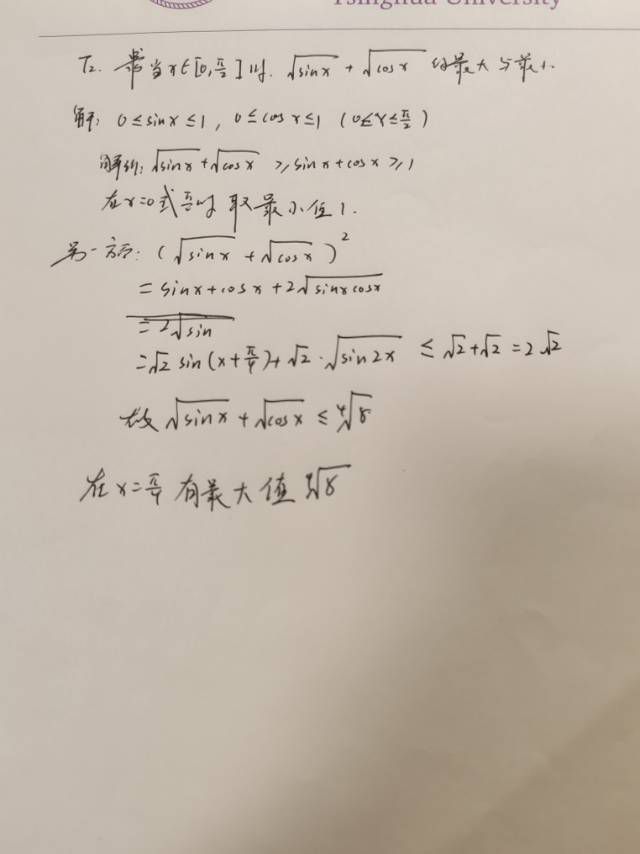 Tsinghua University
T2. 当x∈[0,π/2]时. √sinx + √cosx 的最大与最小.
解: 0≤sinx≤1, 0≤cosx≤1 (0≤x≤π/2)
√sinx+√cosx ≥ sinx+cosx ≥1
在x=0或π/2时 取最小值1.
另一方面: (√sinx + √cosx)²
= sinx+cosx+2√sinxcosx
=2√sin
=√2 sin(x+π/4)+√2·√sin2x ≤ √2+√2=2√2
故 √sinx + √cosx ≤ ⁴√8
在x=π/4 有最大值 ⁴√8